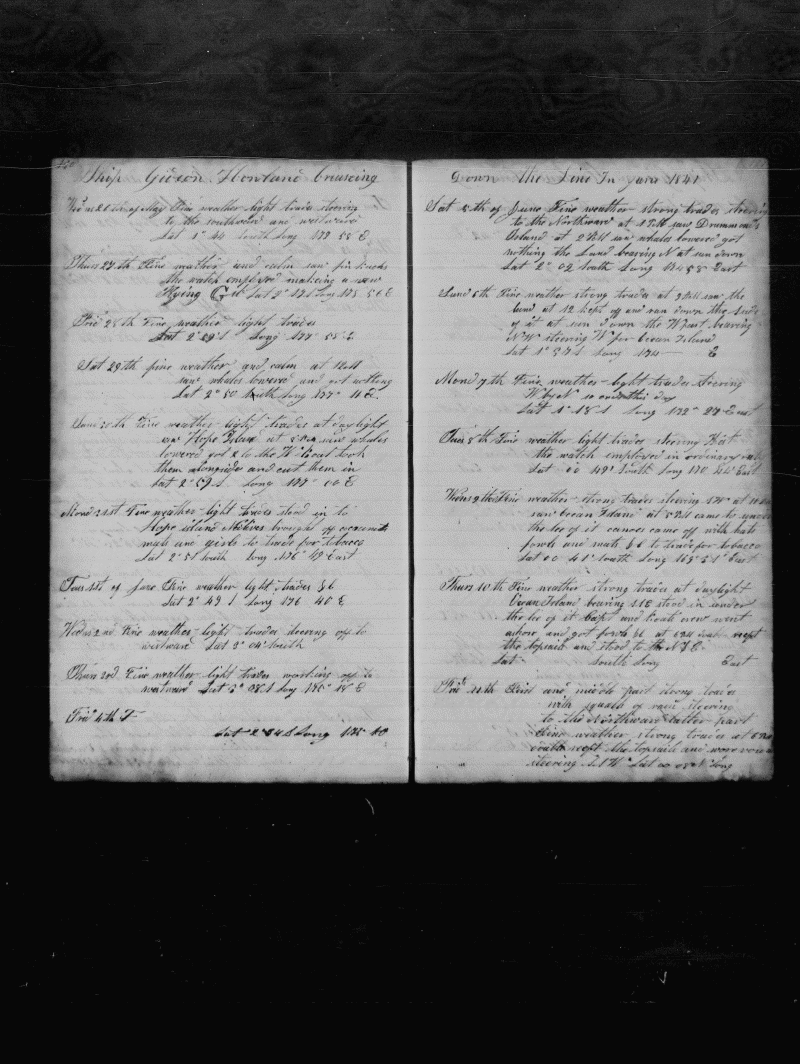 Ship Gideon Howland Cruising
of May Fine weather light trades steering
to the southward and westward
Lat 1° 44 South Long 179 55 E
Thurs 27th Fine weather and calm saw fin backs
the watch employed making a new
Flying Gib Lat 2° 17 S Long 178 50 E
Frid 28th Fine weather light trades
Lat 2° 29 S Long 177 55 E
Sat 29th fine weather and calm at 12 M
saw whales lowered and got nothing
Lat 2° 50 South Long 177° 11 E
30th Fine weather light trades at daylight
saw Hope Island at saw whales
lowered got to the W Boat took
them alongside and cut them in
Lat 2° S Long 177° 00 E
Mond 31st Fine weather light trades stood in to
Hope island Natives brought off cocoanuts
mats and girls to trade for tobacco
Lat 2° 51 South Long 176° 49 East
Tues 1st of June Fine weather light trades &c
Lat 2° 49 S Long 176 40 E
Wedns 2nd Fine weather light trades steering off to
westward Lat 2° 04 South
Thurs 3rd Fine weather light trades working off to
westward Lat S Long E
Frid 4th F
Lat 2° 34 S Long 175 40
Down the Line In June 1841
Sat 5th of June Fine weather strong trades steering
to the Northward at 1 PM saw Drummond's
Island at 2 PM saw whales lowered got
nothing the Land bearing N at sun down
Lat 2° 02 South Long East
Sund 6th Fine weather strong trades at saw the
land at 12 kept off and ran down the side
of it at sun down the W part bearing
NW steering W for Ocean Island
Lat 1° 37 S Long 174 E
Mond 7th Fine weather light trades steering
W by N so ends this day
Lat 1° 18 S Long 172° 27 East
Tues 8th Fine weather light trades steering West
the watch employed in ordinary
Lat 00 49' South Long 170 East
Wedns 9th Fine weather strong trades steering at
saw Ocean Island at 5 PM came to under
the lee of it canoes came off with hats
fowls and mats &c to trade for tobacco
Lat 00 41' South Long 169° 51' East
Thurs 10th Fine weather strong trades at daylight
Ocean Island bearing stood in under
the lee of it Capt and boats crew went
ashore and got fowls &c at reeft
the topsails and stood to the
Lat South Long East
Frid 11th First and middle part strong trades
with squalls of rain steering
to the Northward latter part
Fine weather strong trades at
reeft the topsails and wore
steering Lat 00 08 N Long